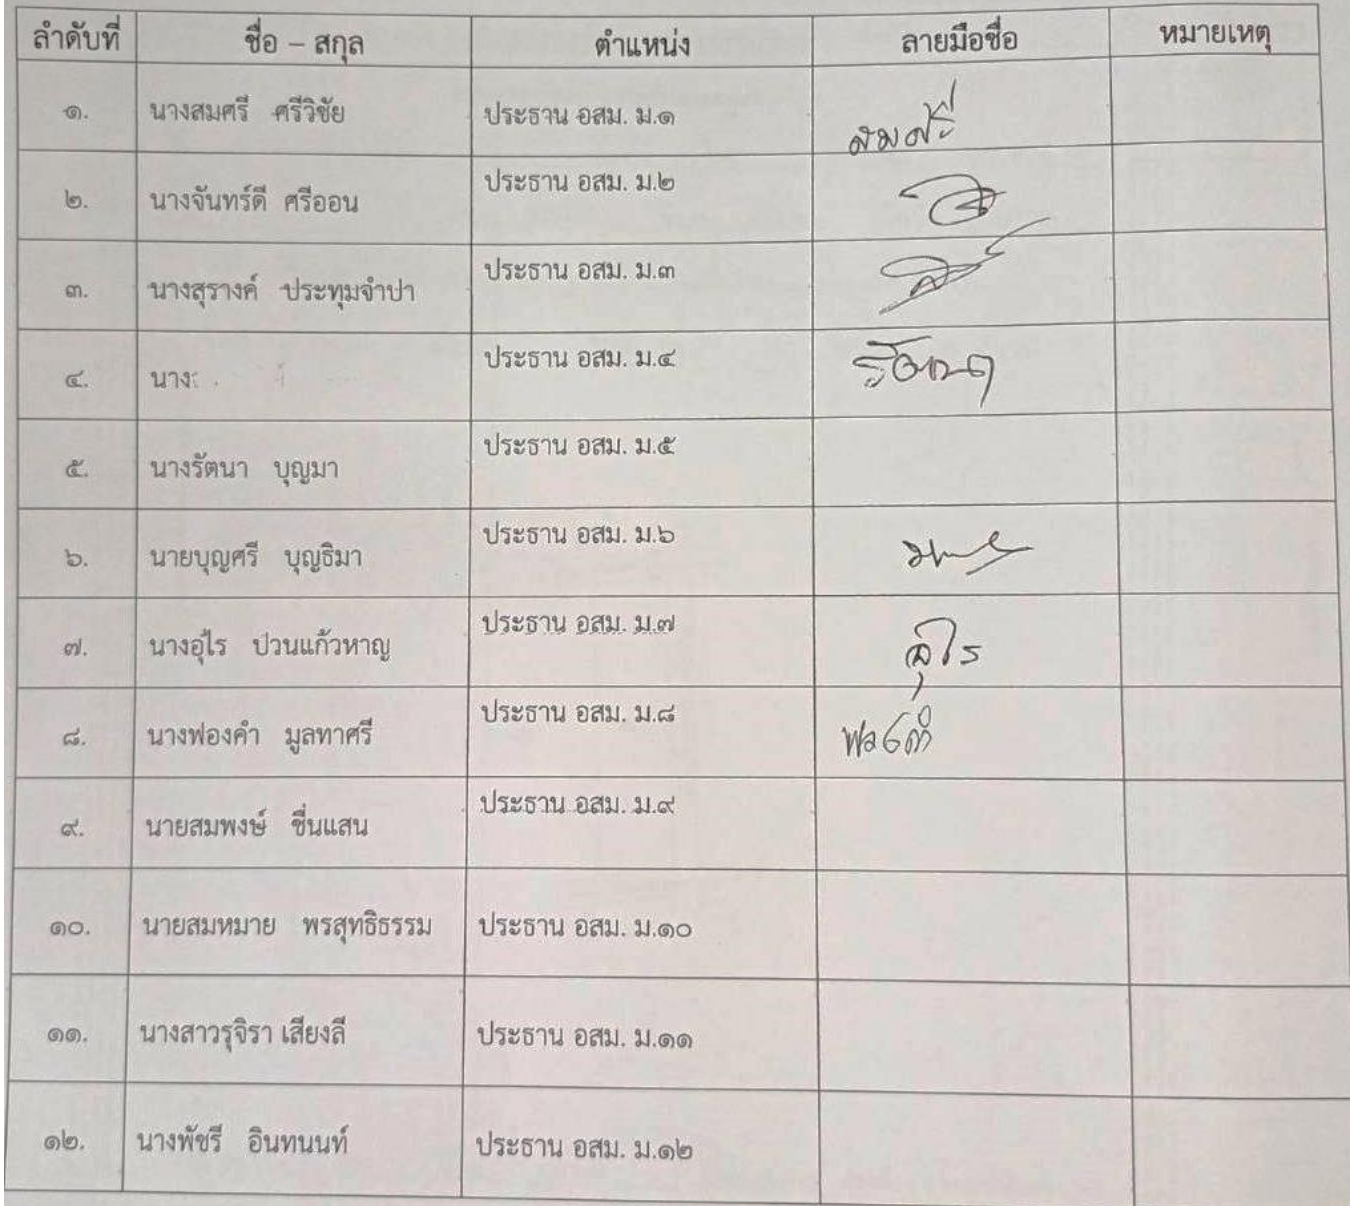 ลำดับที่ ชื่อ – สกุล ตำแหน่ง ลายมือชื่อ หมายเหตุ
๑. นางสมศรี ศรีวิชัย ประธาน อสม. ม.๑ สมศรี
๒. นางจันทร์ดี ศรีออน ประธาน อสม. ม.๒
๓. นางสุรางค์ ประทุมจำปา ประธาน อสม. ม.๓
๔. นาง ประธาน อสม. ม.๔
๕. นางรัตนา บุญมา ประธาน อสม. ม.๕
๖. นายบุญศรี บุญธิมา ประธาน อสม. ม.๖
๗. นางอุไร ปวนแก้วหาญ ประธาน อสม. ม.๗ อุไร
๘. นางฟองคำ มูลทาศรี ประธาน อสม. ม.๘ ฟองคำ
๙. นายสมพงษ์ ชื่นแสน ประธาน อสม. ม.๙
๑๐. นายสมหมาย พรสุทธิธรรม ประธาน อสม. ม.๑๐
๑๑. นางสาวรุจิรา เสียงลี ประธาน อสม. ม.๑๑
๑๒. นางพัชรี อินทนนท์ ประธาน อสม. ม.๑๒